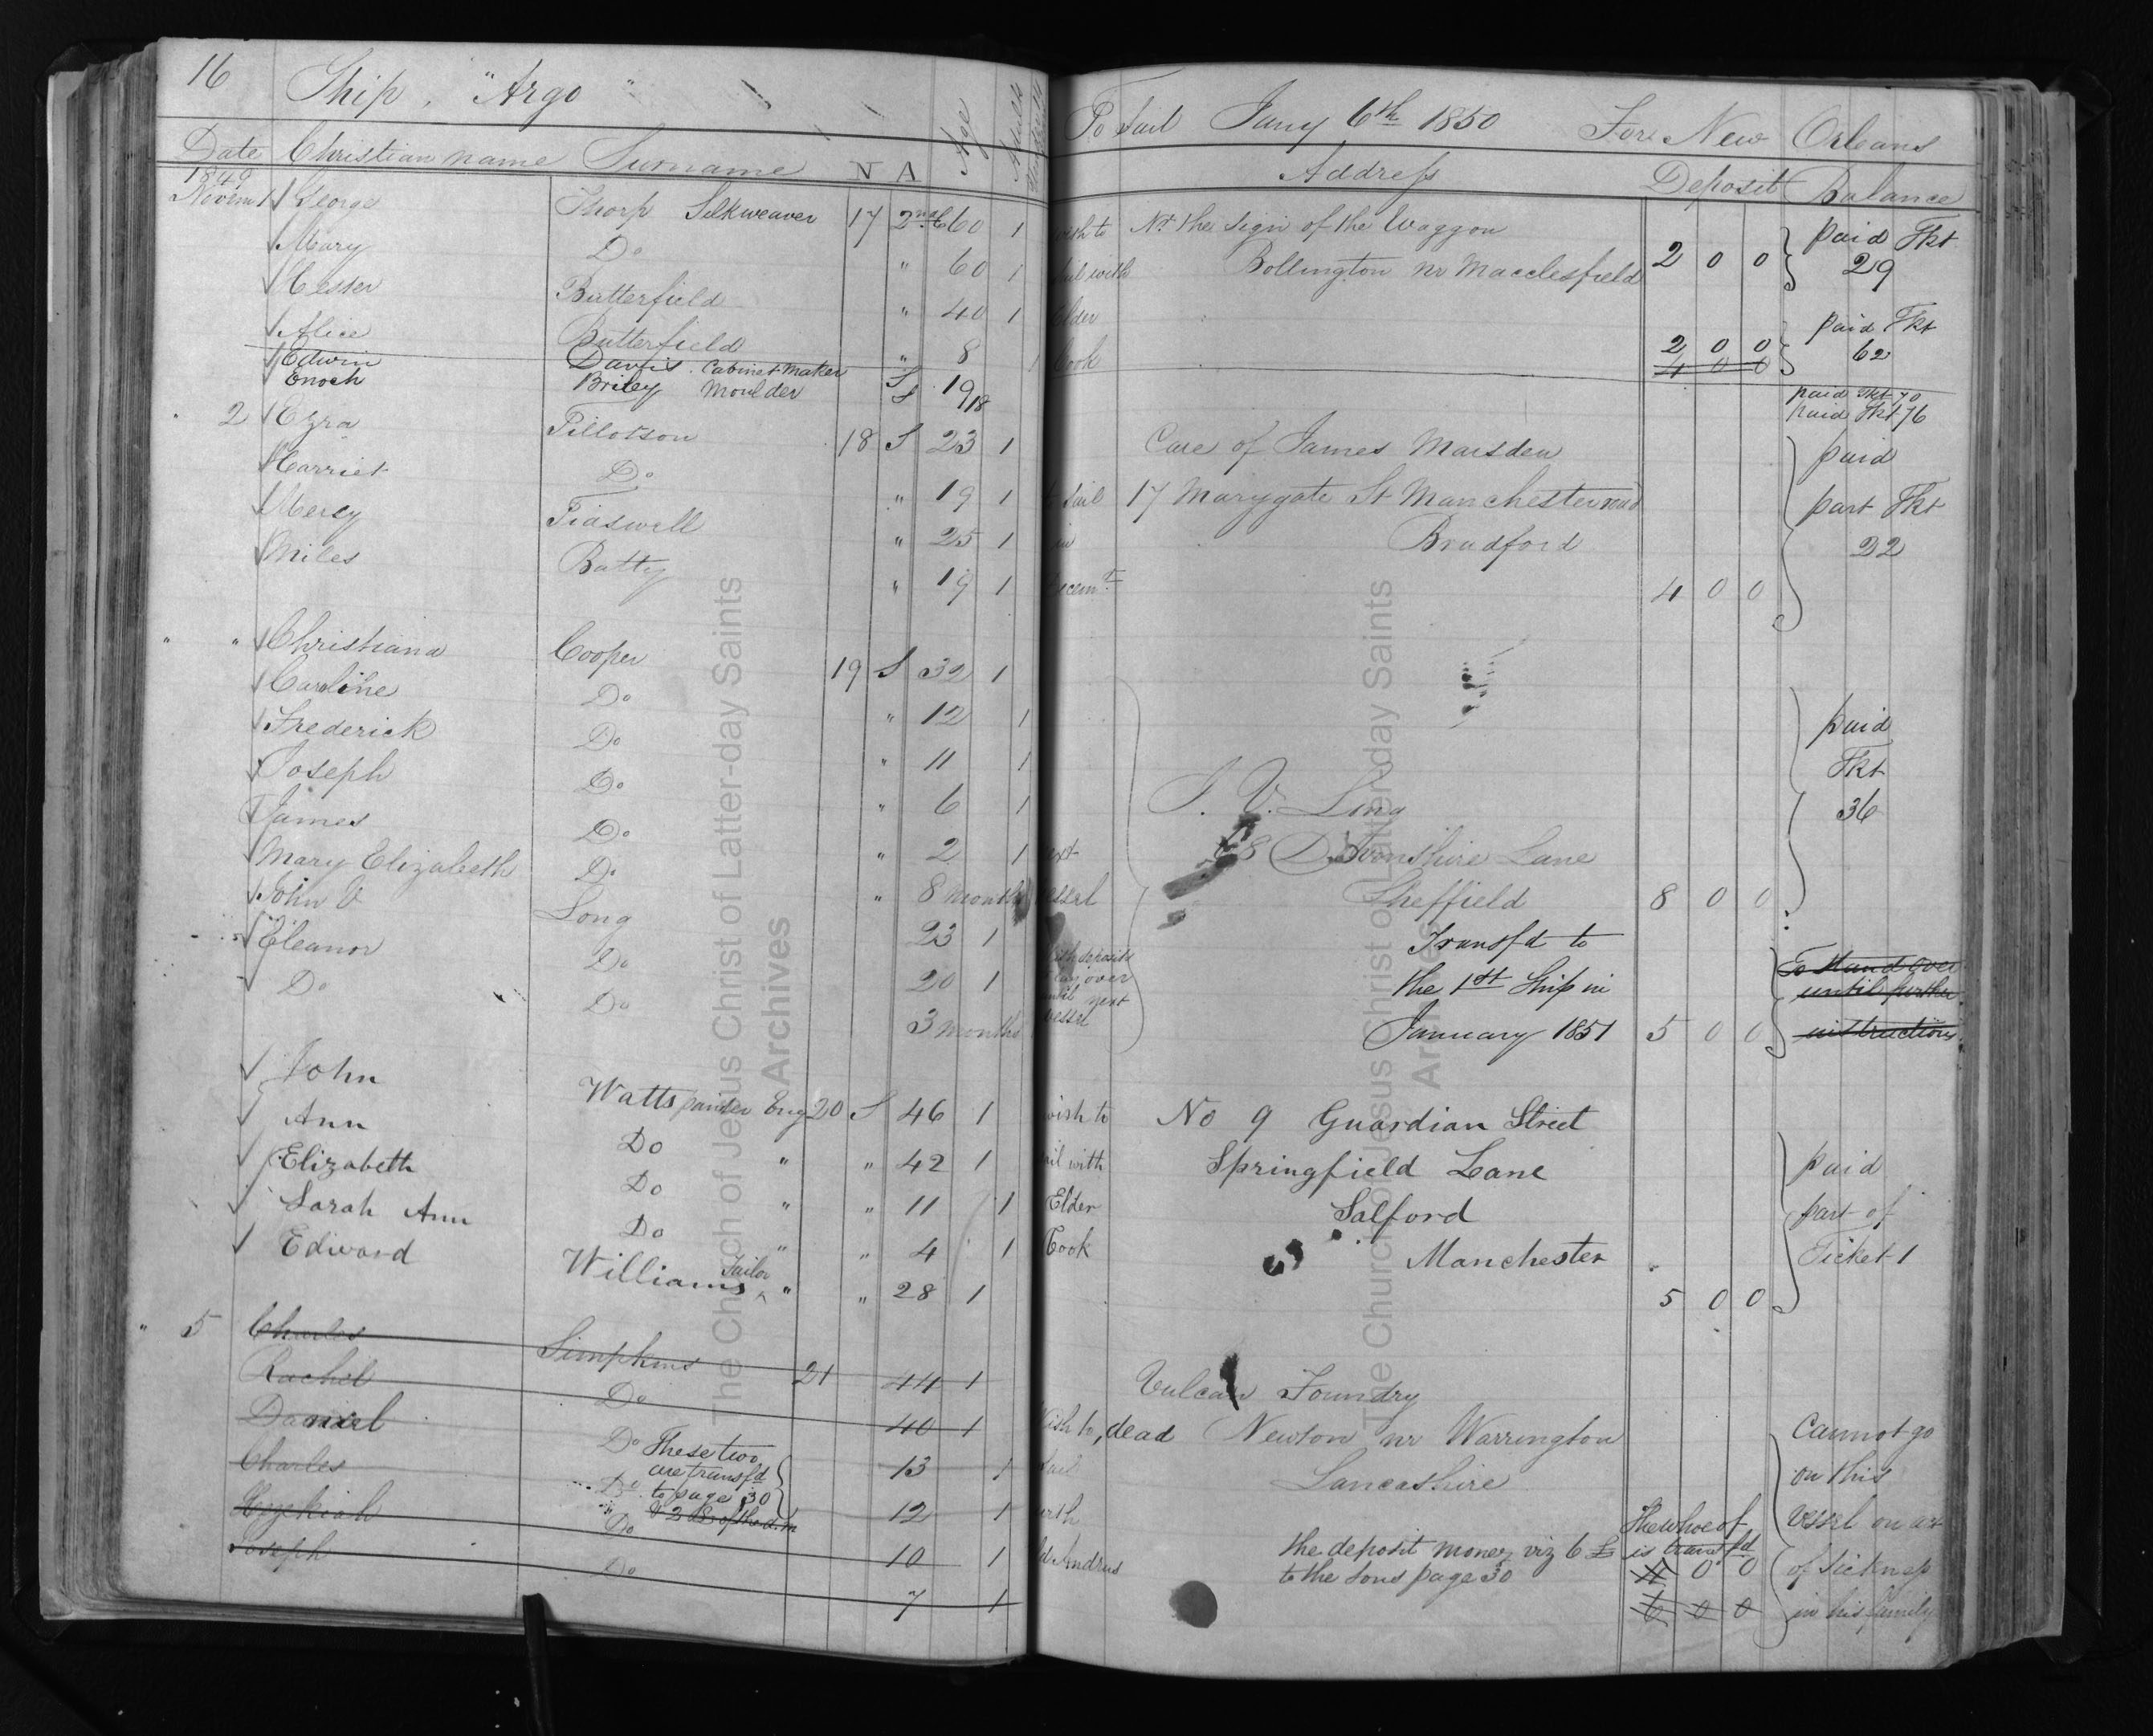 16 Ship, "Argo" To Sail Jany 6th 1850 For New Orleans
Date Christian name Surname N A Age Adults Address Deposit Balance
1849
Novem 1 George Thorp Silkweaver 17 2nd C 60 1 wish to Nr the Sign of the Waggon paid Tkt
Mary Do " 60 1 sail with Bollington nr Macclesfield 2 0 0 29
Hester Butterfield " 40 1 Elder paid Tkt
Alice Butterfield " 8 1 Cook 2 0 0 62
4 0 0
Edwin Davis Cabinet Maker S 19 paid Tkt 70
Enoch Briley Moulder S 18 paid Tkt 76
" 2 Ezra Tillotson 18 S 23 1 Care of James Marsden paid
Harriet Do " 19 1 to sail 17 Marygate St Manchester road part Tkt
Mercy Tidswell " 25 1 in Bradford 22
Miles Batty " 19 1 Decemr 4 0 0
" " Christiana Cooper 19 S 32 1
Caroline Do " 12 1 paid
Frederick Do " 11 1 Tkt
Joseph Do " 6 1 J. V. Long 36
James Do " 2 1 next 68 Devonshire Lane
Mary Elizabeth Do " 8 months vessel Sheffield 8 0 0
John V Long 23 1 Transfd to
Eleanor Do 20 1 with deposits to lay over the 1st Ship in To Stand over until further
Do Do 3 months until next vessel January 1851 5 0 0 instructions
John Watts painter Eng 20 S 46 1 wish to No 9 Guardian Street
Ann Do " " 42 1 sail with Springfield Lane paid
Elizabeth Do " " 11 1 Elder Salford part of
Sarah Ann Do " " 4 1 Cook Manchester Ticket 1
Edward Williams Tailor " " 28 1 5 0 0
" 5 Charles Simpkins 21 44 1 Vulcan Foundry
Rachel Do 40 1 Wish to, dead Newton nr Warrington Cannot go
Daniel Do These two 13 1 sail Lancashire on this
Charles Do are transfd to page 30 12 1 with The whole of vessel on act
Hezekiah Do 10 1 Andrus the deposit money viz 6 £ is transfd of sickness
to the Sons page 30 4 0 0
Joseph Do 7 1 6 0 0 in his family
The Church of Jesus Christ of Latter-day Saints
Archives
The Church of Jesus Christ of Latter-day Saints
Archives